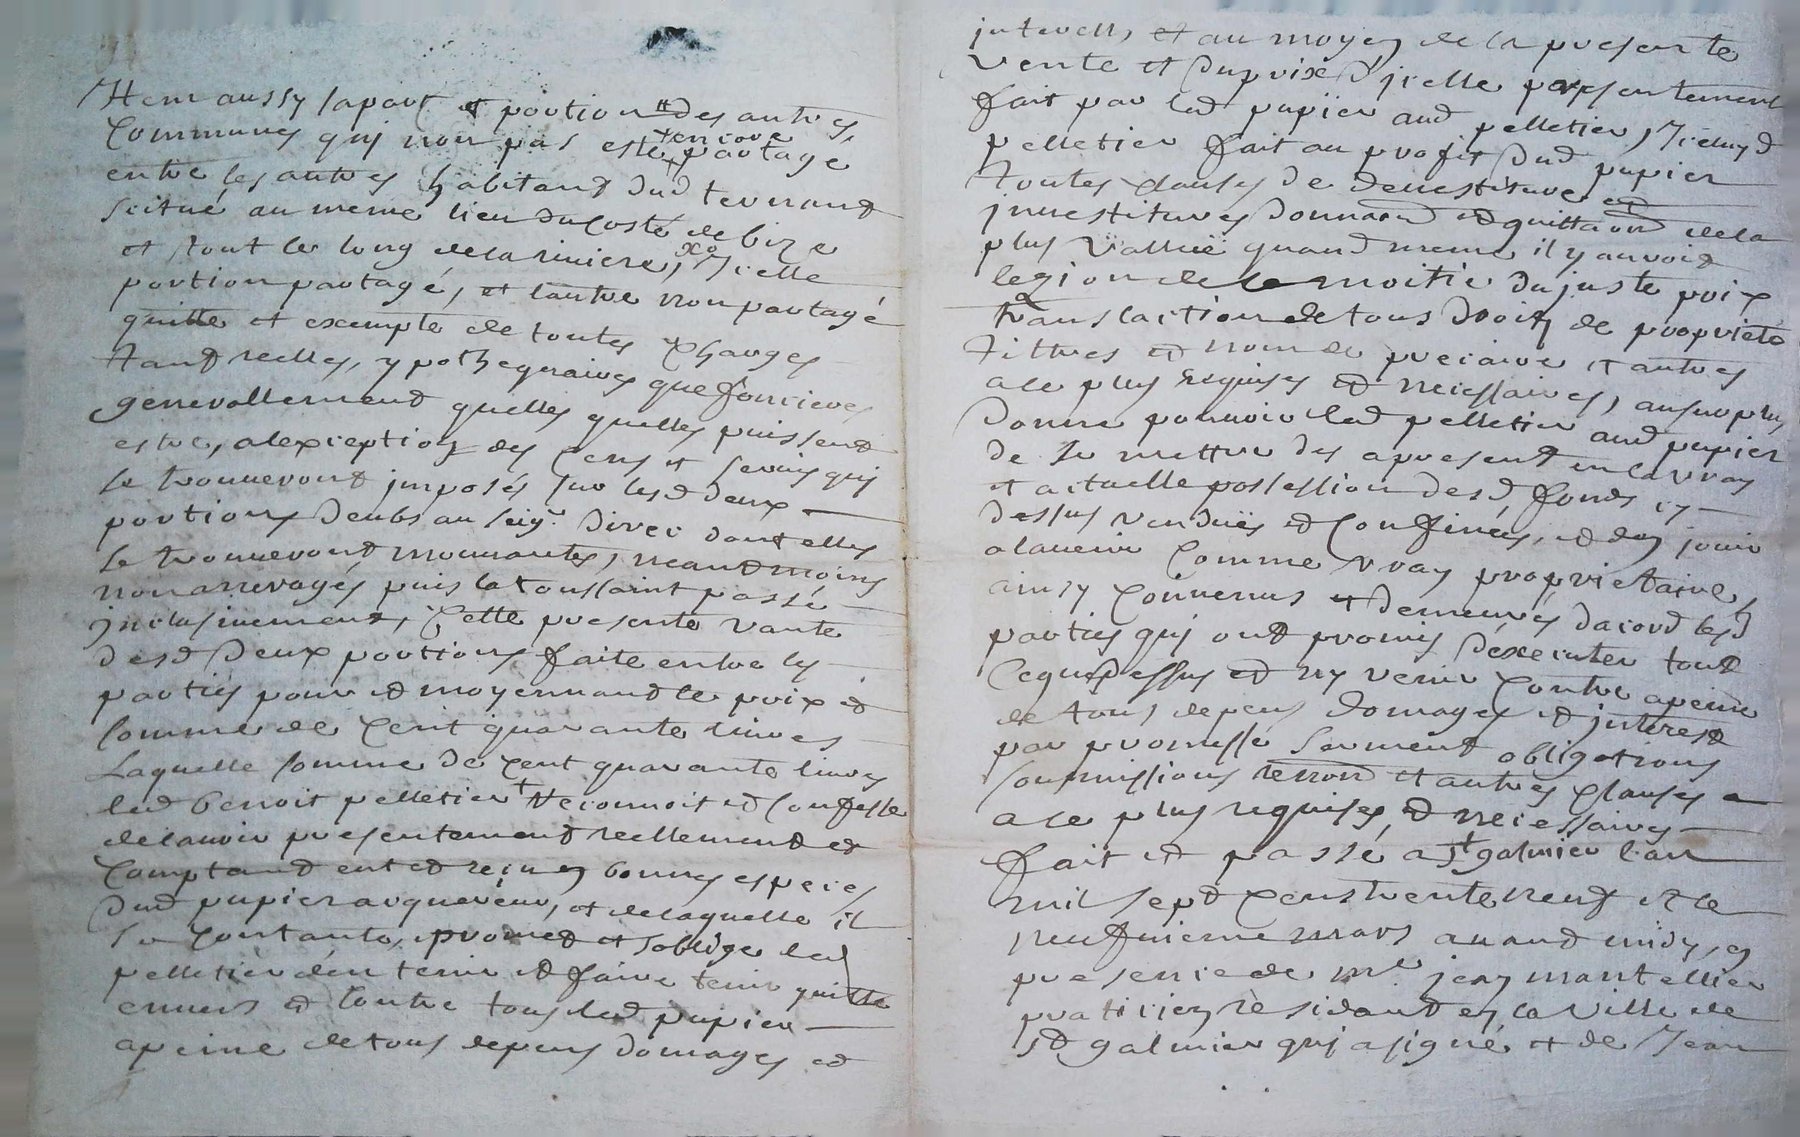 Item aussy sa part et portion des autres
communes quj non pas este encore partagé
entre les autres habitand dud ternand
scitué au meme lieu du costé de bize
et tout le long de la riuiere, Jcelle
portion partagé, et lautre non partagé
quitte et exempte de toutes charges
tand reelles, ypothequaires que foncieres
generallemend quelles quelles puissend
estre, alexception des cens et seruis quj
se trouuerond jmposés sur lesd deux
portions deubs au seigr direc dont elles
se trouuerond mouuantes, neandmoins
non arreragés puis la toussaint passé
jnclusiuement, Cette presente vante
desd deux portions faite entre les
parties pour et moyennand le prix et
somme de cent quarante liures
Laquelle somme de cent quarante liures
led benoit pelletier reconnoit et confesse
delauoir presentemend reellemend et
comptand eut et reçu en bonnes especes
dud papier acquereur, et de laquelle il
se contante, promet et soblige led
pelletier den tenir et faire tenir quitte
enuers et contre tous led papier
apeine de tous depens domages et
jnterests, et au moyen de la presente
vente et du prix djcelle presentement
fait par led papier aud pelletier, Jceluyd
pelletier fait au profit dud papier
toutes clauses de deuestiture et
jnuestitures donnaon et quittaon de la
plus valluë quand meme il y auroit
lezion de la moitié du juste prix
translaction de tous droits de proprieté
tittres et nom de precaire et autres
a ce plus requises et necessaires, ausurplus
donne pouuoir led pelletier aud papier
de se mettre des apresent en la vray
et actuelle possession desd fonds cy
dessus venduës et confinées, et den jouir
alauenir comme vray proprietaire,
ainsy conuenus et demeurés dacord lesd
parties quj ond promis dexecuter tout
ce que dessus et ny venir contre apeine
de tous depens domages et jnterest
par promesse serment obligations
soumissions renond et autres clauses
a ce plus requises, et necessaires
fait et passé a St galmier lan
mil sept cens trente neuf et le
neufuieme mars auand midy, en
presence de mr jean mantellier
praticien residand en la ville de
St galmier quj a signé et de Jean